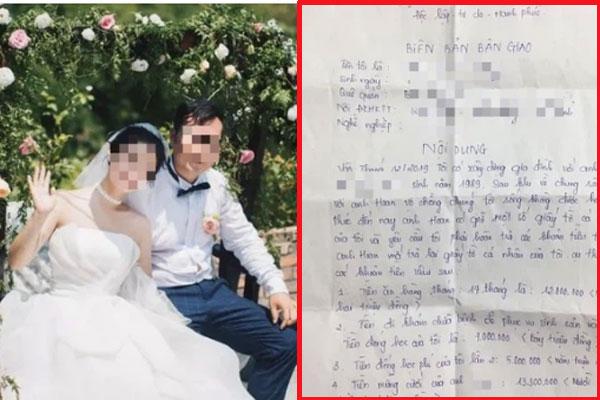 Độc lập - tự do - Hạnh phúc
BIÊN BẢN BÀN GIAO
Tôi tên là :
Sinh ngày :
Quê quán :
Nơi ĐKHKTT :
Nghề nghiệp :
NỘI DUNG
Vào Tháng 12/2019 Tôi có xây dựng gia đình với anh
sinh năm 1989. Sau khi về chung
với anh Hoan vợ chồng chúng tôi sống không được
đến nay anh Hoan có giữ một số giấy tờ cá
của tôi và yêu cầu tôi phải hoàn trả các khoản tiền
anh Hoan mới trả lại giấy tờ cá nhân của tôi.
các khoản tiền như sau
1. Tiền ăn hàng tháng 14 tháng là : 12.000.000 <
hai triệu đồng )
2. Tiền đi khám chữa bệnh để phục vụ sinh sản
Tiền đóng học của tôi là : 7.000.000 < bảy triệu đồng
3. Tiền đóng học phí của tôi lần 2: 5.000.000 < năm triệu
4. Tiền mừng cưới của anh : 13.300.000 < Mười